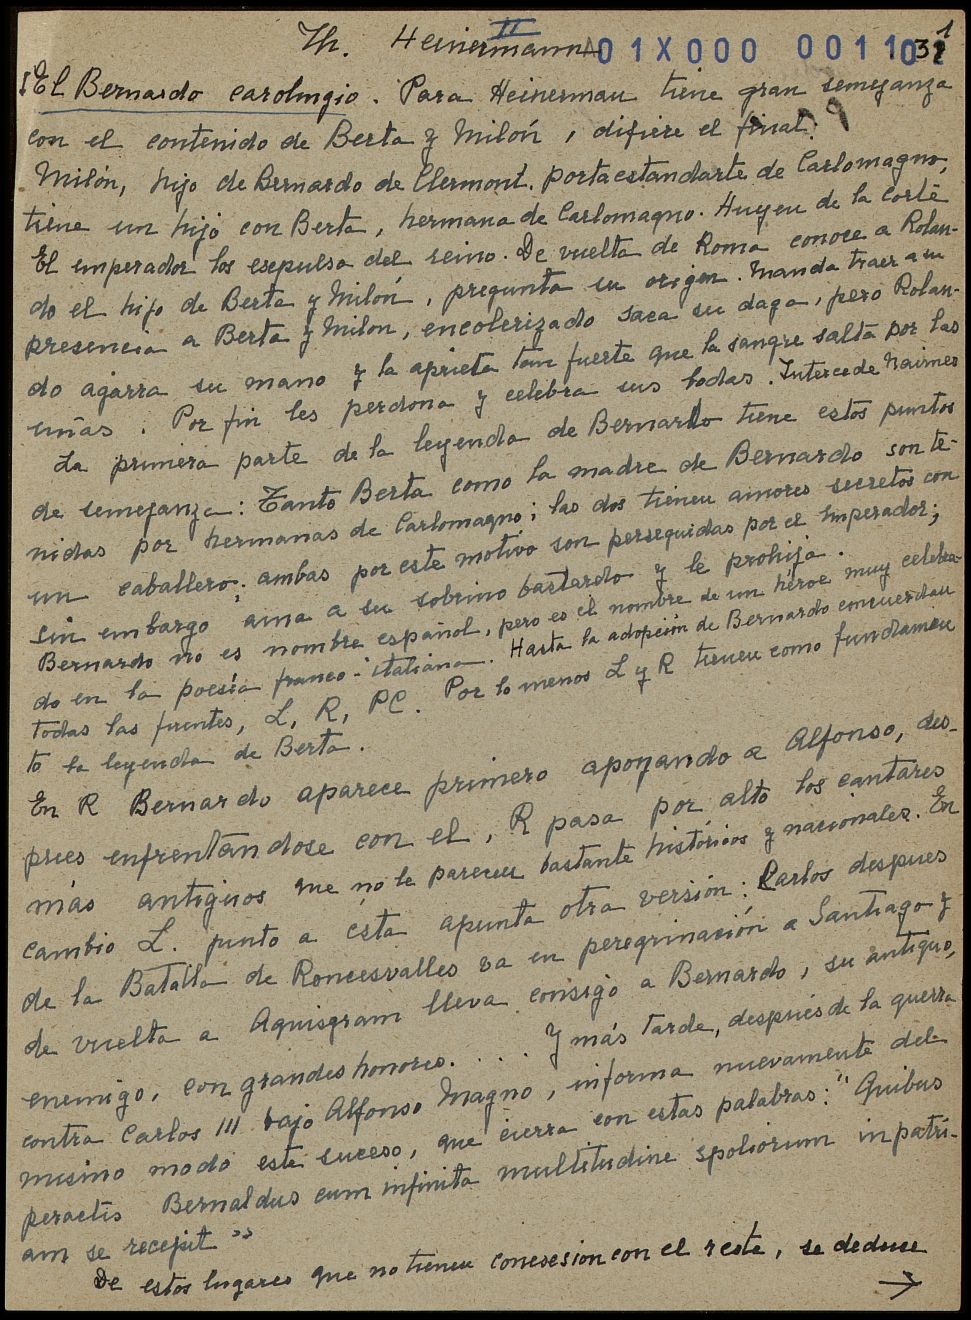 II
Th. Heinermann A01X000 001103 1
I El Bernardo carolingio. Para Heinerman tiene gran semejanza
con el contenido de Berta y Milón, difiere el final.
Milón, hijo de Bernardo de Clermont. portaestandarte de Carlomagno,
tiene un hijo con Berta, hermana de Carlomagno. Huyen de la corte
El emperador los esepulsa del reino. De vuelta de Roma conoce a Rolan-
do el hijo de Berta y Milón, pregunta su origen. Manda traer a su
presencia a Berta y Milon, encolerizado saca su daga, pero Rolan-
do agarra su mano y la aprieta tan fuerte que la sangre salta por las
uñas. Por fin les perdona y celebra sus bodas. Intercede Naimes
La primera parte de la leyenda de Bernardo tiene estos puntos
de semejanza: Tanto Berta como la madre de Bernardo son te-
nidas por hermanas de Carlomagno; las dos tienen amores secretos con
un caballero; ambas por este motivo son perseguidas por el Emperador;
sin embargo ama a su sobrino bastardo y le prohija.
Bernardo no es nombre español, pero es el nombre de un héroe muy celebra-
do en la poesía franco-italiana. Hasta la adopción de Bernardo concuerdan
todas las fuentes, L, R, PC. Por lo menos L y R tienen como fundamen
to la leyenda de Berta.
En R Bernardo aparece primero apoyando a Alfonso, des-
pues enfrentandose con el, R pasa por alto los cantares
más antiguos que no le parecen bastante históricos y nacionales. En
cambio L. junto a ésta apunta otra versión: Carlos despues
de la Batalla de Roncesvalles va en peregrinación a Santiago y
de vuelta a Aquisgram lleva consigo a Bernardo, su antiguo,
enemigo, con grandes honores. .... Y más tarde, después de la guerra
contra Carlos III bajo Alfonso Magno, informa nuevamente del
mismo modo este suceso, que cierra con estas palabras: "Quibus
peractis Bernaldus cum infinita multitudine spoliorum in patri-
am se recepit"
De estos lugares que no tienen conesesion con el resto, se deduce
→